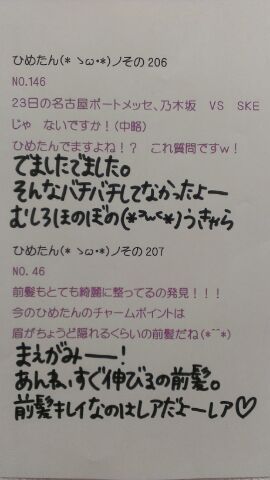 ひめたん(* ゝω・*)ノその206
NO.146
23日の名古屋ポートメッセ、乃木坂　VS　SKE
じゃ　ないですか！(中略)
ひめたんでますよね！？　これ質問ですｗ！
でましたでました。
そんなバチバチしてなかったよー
むしろほのぼの(*³ω<*)うきゃら
ひめたん(* ゝω・*)ノその207
NO. 46
前髪もとても綺麗に整ってるの発見！！！
今のひめたんのチャームポイントは
眉がちょうど隠れるくらいの前髪だね(*^^*)
まえがみー！
あんね、すぐ伸びるの前髪。
前髪キレイなのはレアだよーレア♡